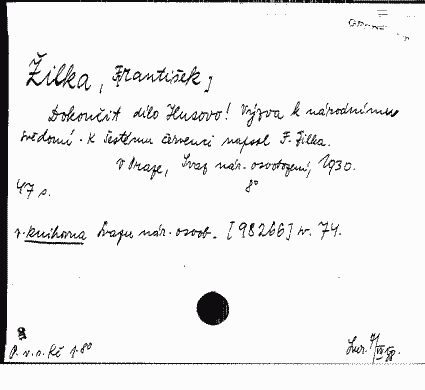 Žilka, František]
Dokončit dílo Husovo! Výzva k národnímu
svědomí. K šestému červenci napsal F. Žilka.
V Praze, Svaz nár. osvobození, 1930.
47 s. 8°
v. knihovna Svazu nár. osvob. [98266] sv. 74.
P. v. n. Rč 1.80